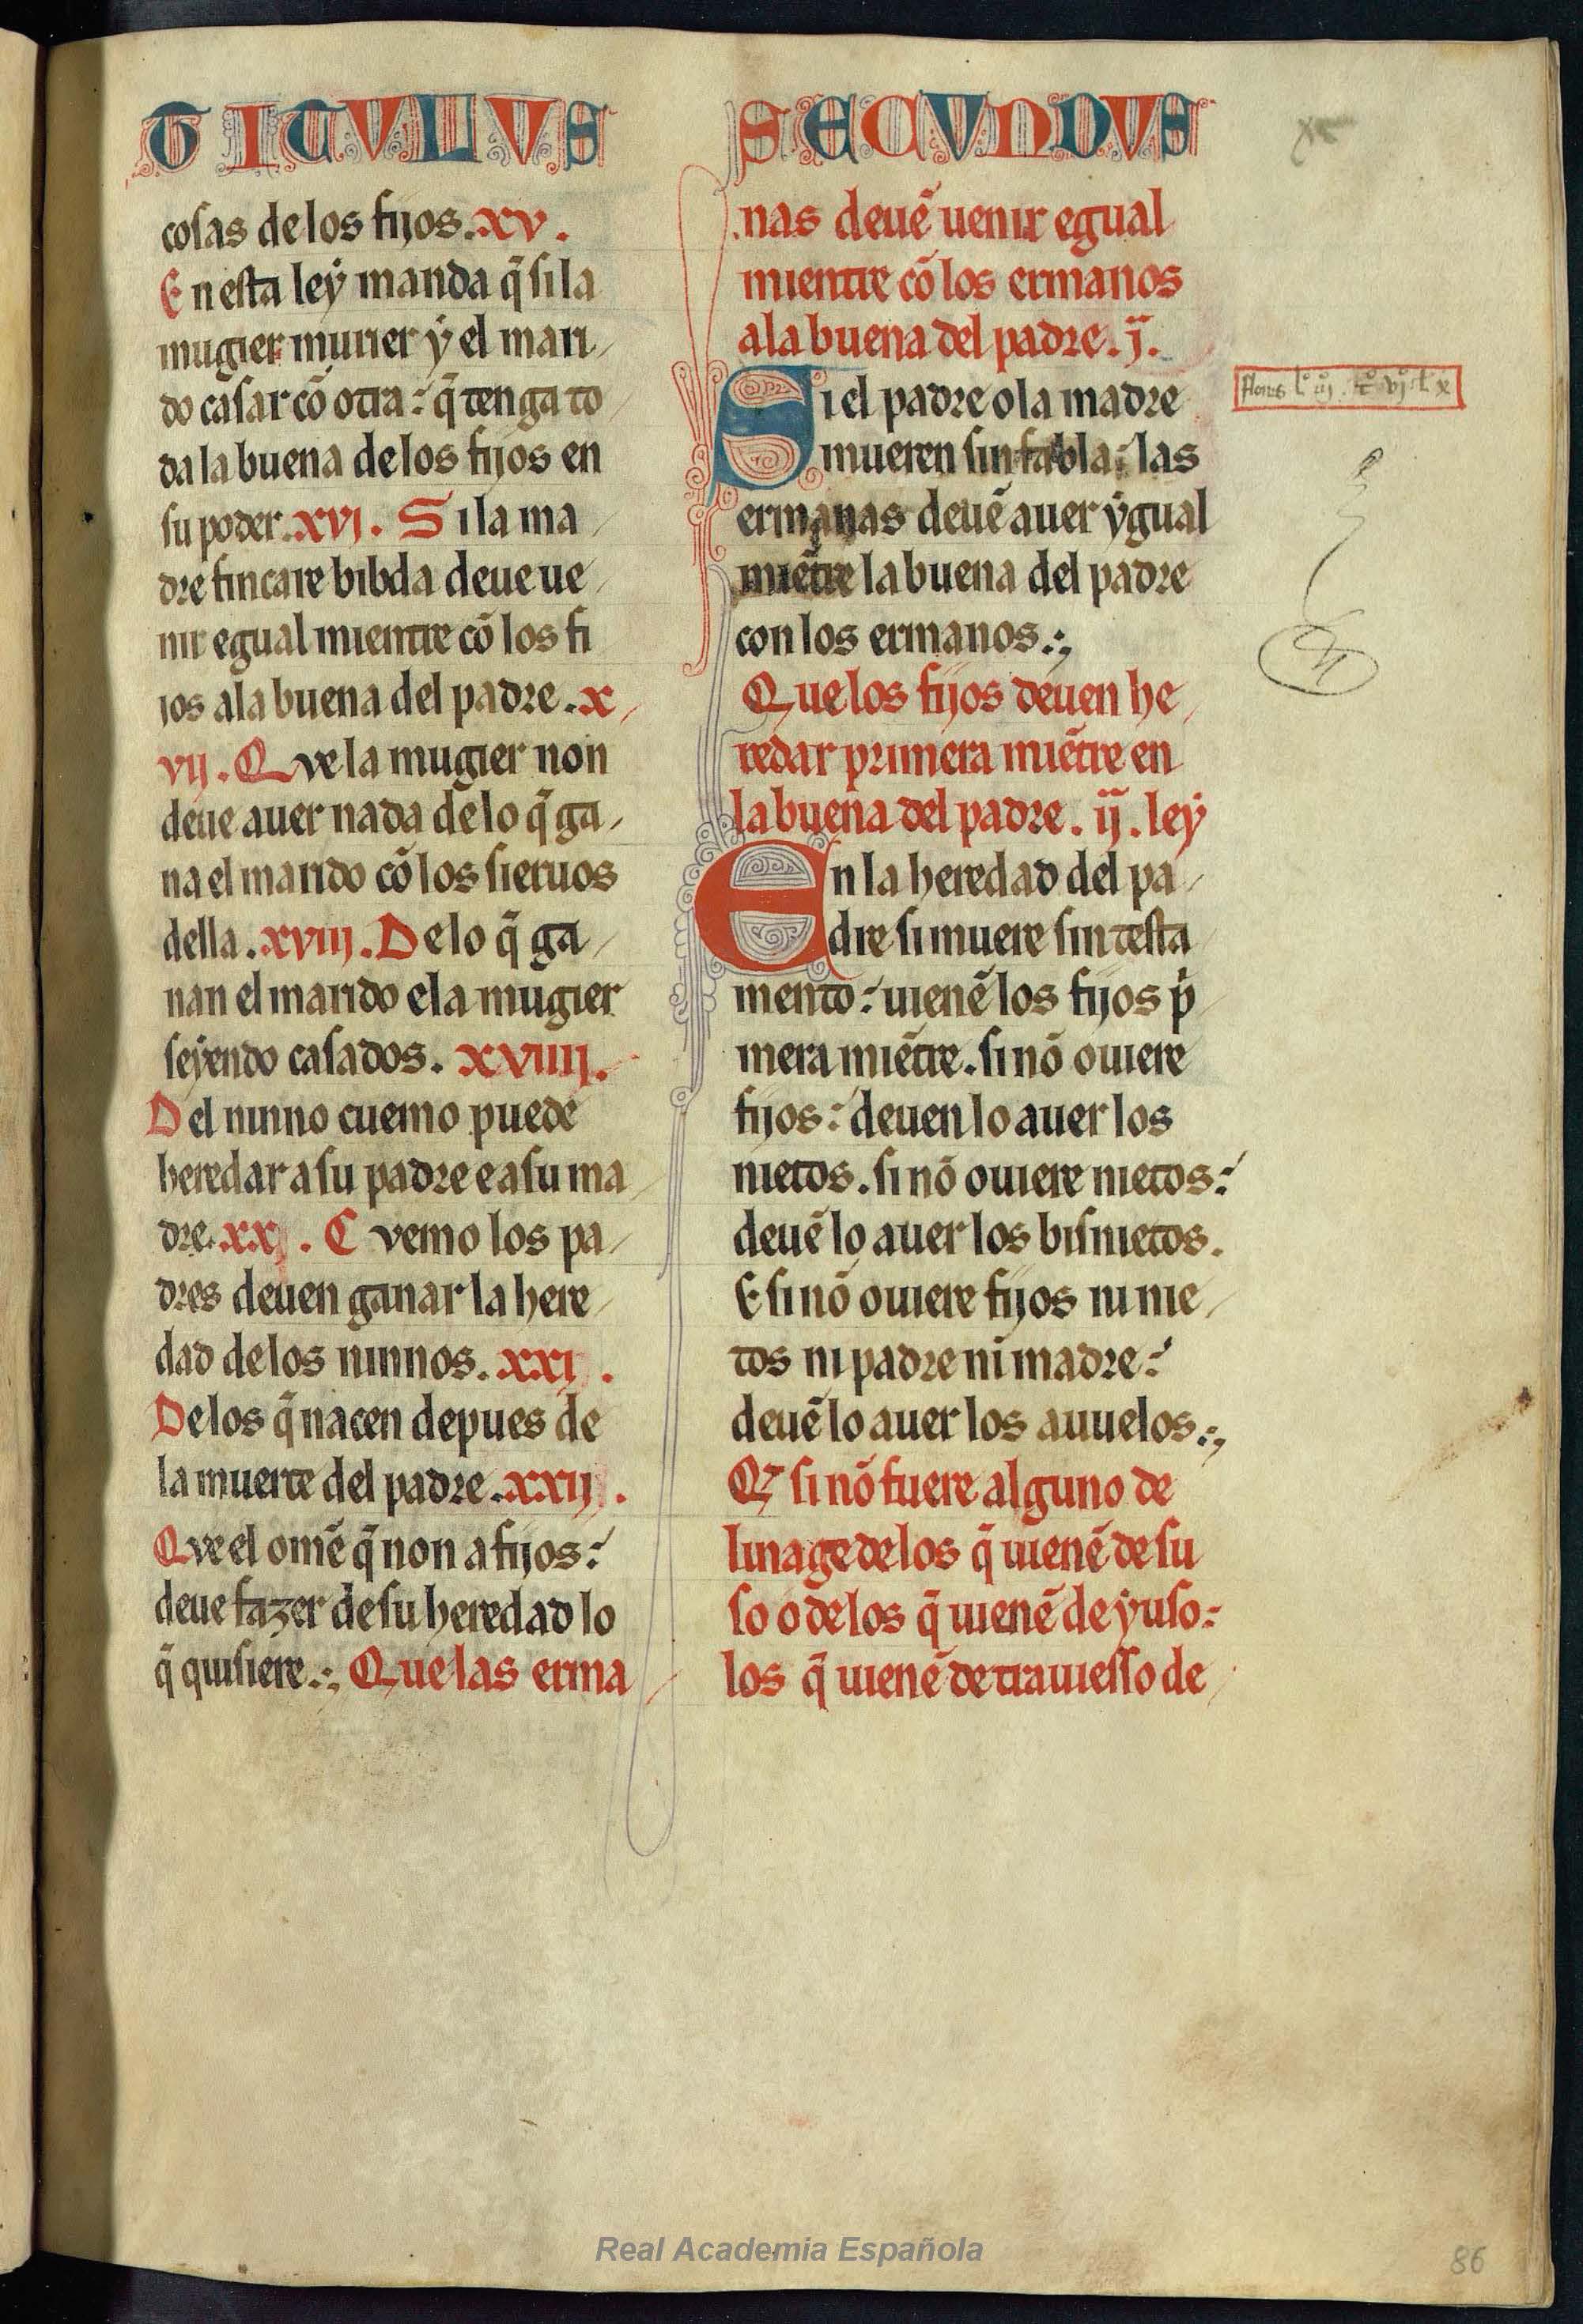 TITULUS SECUNDUS
cosas delos fijos. xv.
En esta leẏ manda q̃ si la
mugier murier ẏ el mari
do casar cõ otra: q̃ tenga to
da la buena delos fijos en
su poder. xvj. Si la ma
dre fincare bibda deue ue
nir egual mientre cõ los fi
jos ala buena del padre. x
vij. Que la mugier non
deue auer nada de lo q̃ ga
na el marido cõ los sieruos
della. xviij. De lo q̃ ga
nan el marido e la mugier
seẏendo casados. xviiij.
Del ninno cuemo puede
heredar a su padre e a su ma
dre. xx. Cuemo los pa
dres deuen ganar la here
dad delos ninnos. xxj.
Delos q̃ nacen depues de
la muerte del padre. xxij.
Que el omẽ q̃ non a fijos:
deue fazer de su heredad lo
q̃ quisiere. Que las erma
nas deuẽ uenir egual
mientre cõ los ermanos
ala buena del padre. j.
Si el padre o la madre
mueren sin fabla: las
ermanas deuẽ auer ẏgual
miẽtre la buena del padre
con los ermanos.
Que los fijos deuen he
redar primera miẽtre en
la buena del padre. ij. leẏ
En la heredad del pa
dre si muere sin testa
mento: uienẽ los fijos p̉
mera miẽtre. si nõ ouiere
fijos: deuen lo auer los
nietos. si nõ ouiere nietos:
deuẽ lo auer los bisnietos.
E si nõ ouiere fijos ni nie
tos ni padre ni madre:
deuẽ lo auer los auuelos.
Q̃ si nõ fuere alguno de
linage delos q̃ uienẽ de su
so o delos q̃ uienẽ de ẏuso:
los q̃ uienẽ de trauiesso de
Real Academia Española
86